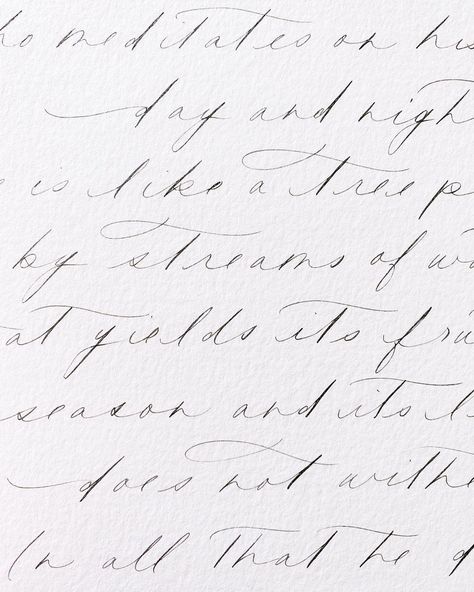 ho meditates on his
day and nigh
e is like a tree p
by streams of wa
at yields its frui
season and its l
does not withe
In all that he d